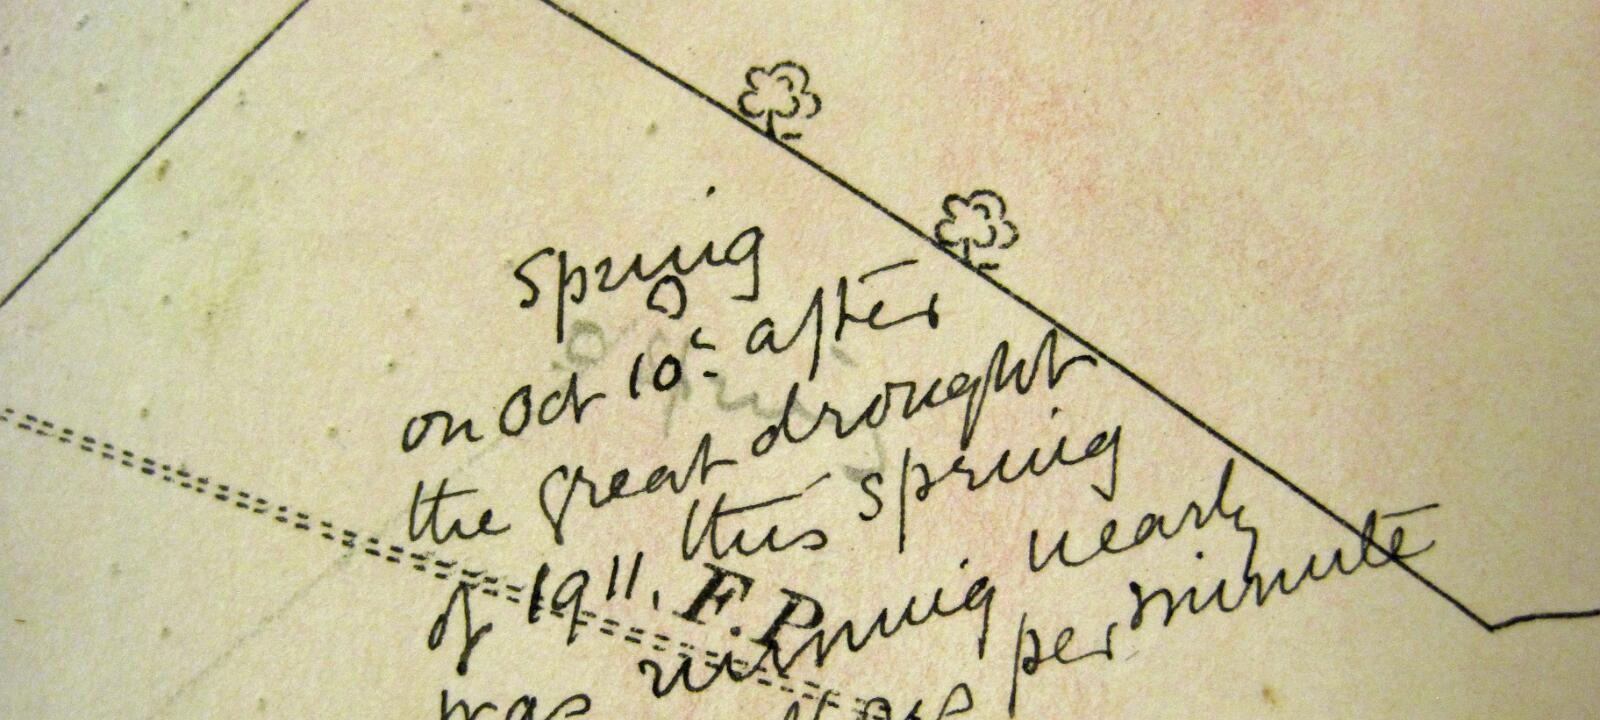 Spring
on Oct 10th after
the great drought
of 1911, this spring
was running nearly
per minute
F.P.